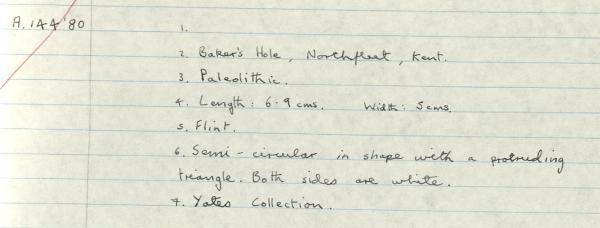 A.144'80
1.
2. Baker's Hole, Northfleet, Kent.
3. Paleolithic.
4. Length: 6.9 cms. Width: 5 cms.
5. Flint.
6. Semi-circular in shape with a protruding
triangle. Both sides are white.
7. Yates Collection.